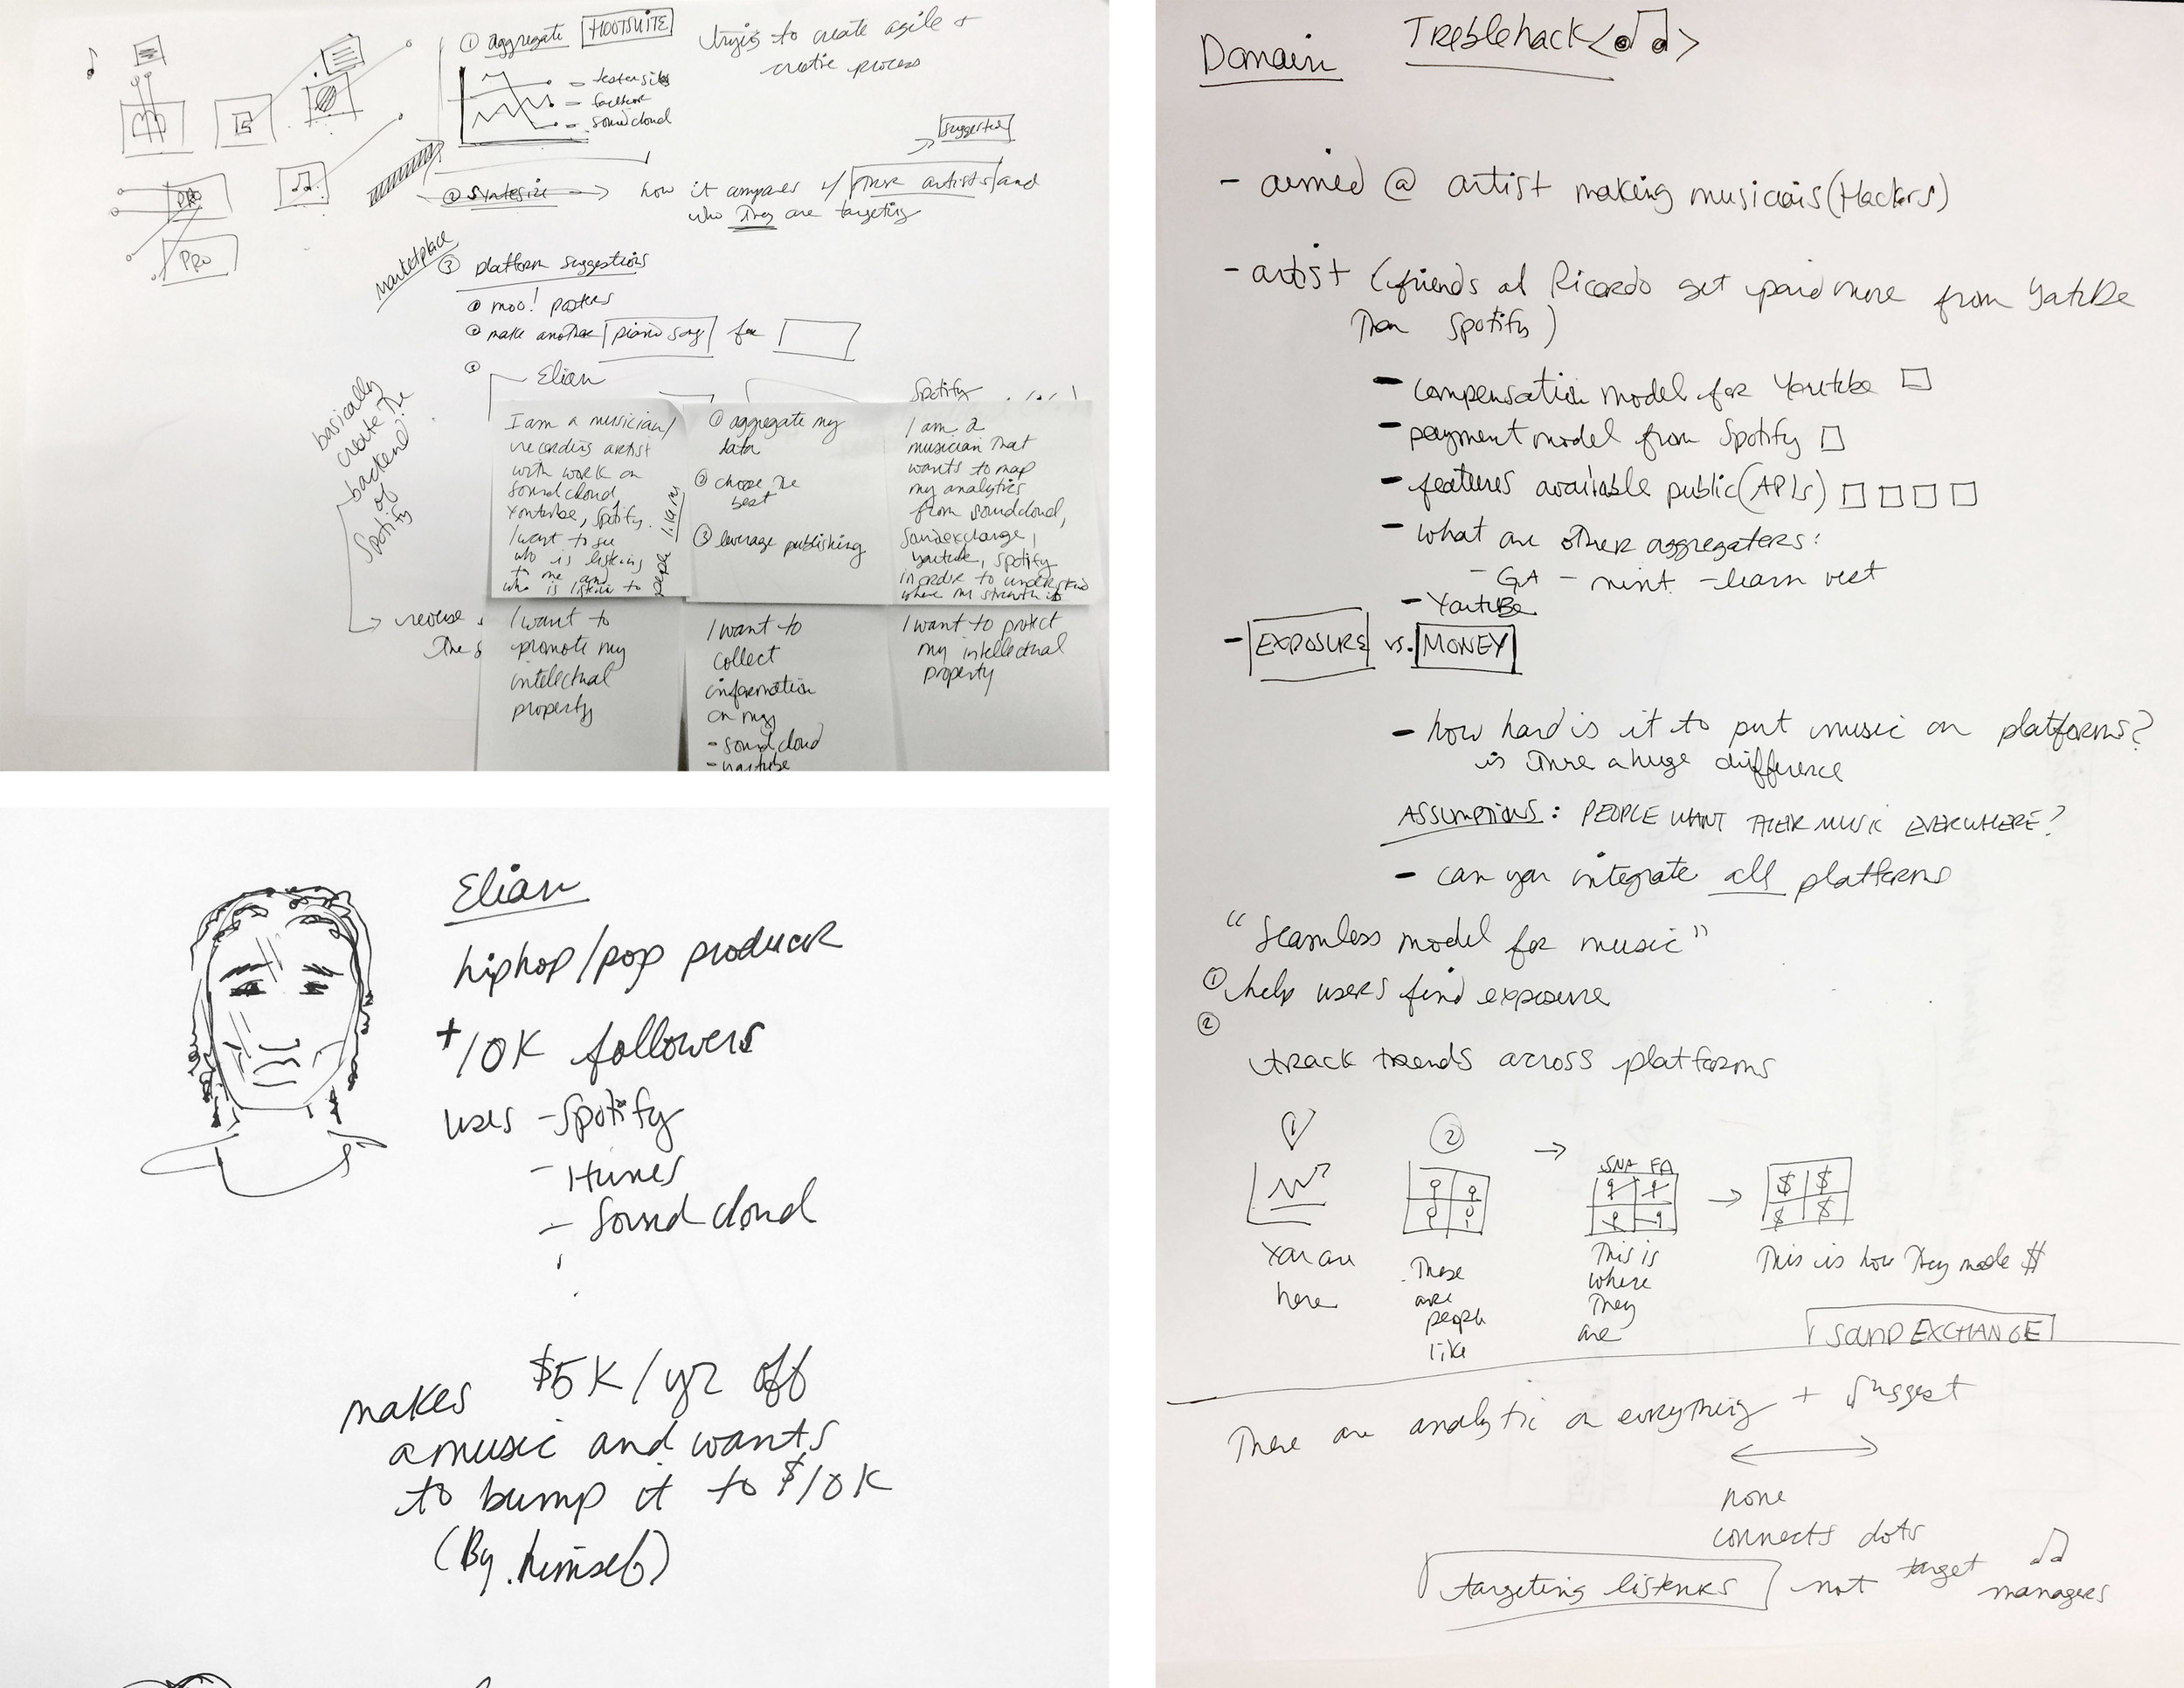 ① aggregate HOOTSUITE
trying to create agile +
creative process
- facebook
- soundcloud
suggested
② Syntesize → how it compares w/ artists and
who they are targeting
Marketplace
③ platform suggestions
moo! posters
make another piano song for
Elian
basically
create the
backend
of
Spotify
reverse
the s
I am a musician/
recording artist
with work on
soundcloud,
Youtube, Spotify.
I want to see
who is listening
to me and
who is listening to
people
① aggregate my
data
② choose the
best
③ leverage publishing
Spotify
I am a
musician that
wants to map
my analytics
from soundcloud,
Soundexchange,
Youtube, Spotify
in order to understand
where my strength is
I want to
promote my
intelectual
property
I want to
collect
information
on my
- soundcloud
- youtube
I want to protect
my intellectual
property
PRO
PRO
Elian
hiphop/pop producer
+10K followers
uses - Spotify
- Itunes
- Soundcloud
makes $5K/yr off
a music and wants
to bump it to $10K
(By himself)
Domain Treblehack<♫>
- aimed @ artist making musicians (Hackers)
- artist (friends of Ricardo get paid more from YouTube
than Spotify)
- compensation model for Youtube
- payment model from Spotify
- features available public (APIs)
- what are other aggregaters:
- GA - mint - learn vest
- YouTube
- EXPOSURE vs. MONEY
- how hard is it to put music on platforms?
is there a huge difference
ASSUMPTIONS: PEOPLE WANT THEIR MUSIC EVERWHERE?
- can you integrate all platforms
"Seamless model for music"
① help users find exposure
②
track trends across platforms
1 2 → SNA FA → $ $ $ $
You are
here
These
are
people
like
This is
where
they
are
This is how they made $
SOUND EXCHANGE
There are analytic on everything + suggest
none
connects dots
targeting listeners not target managers